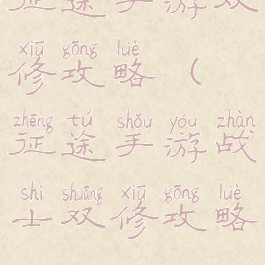 征途手游双
xiū gōng lüè
修攻略（
zhēng tú shǒu yóu zhàn
征途手游战
shì shuāng xiū gōng lüè
士双修攻略